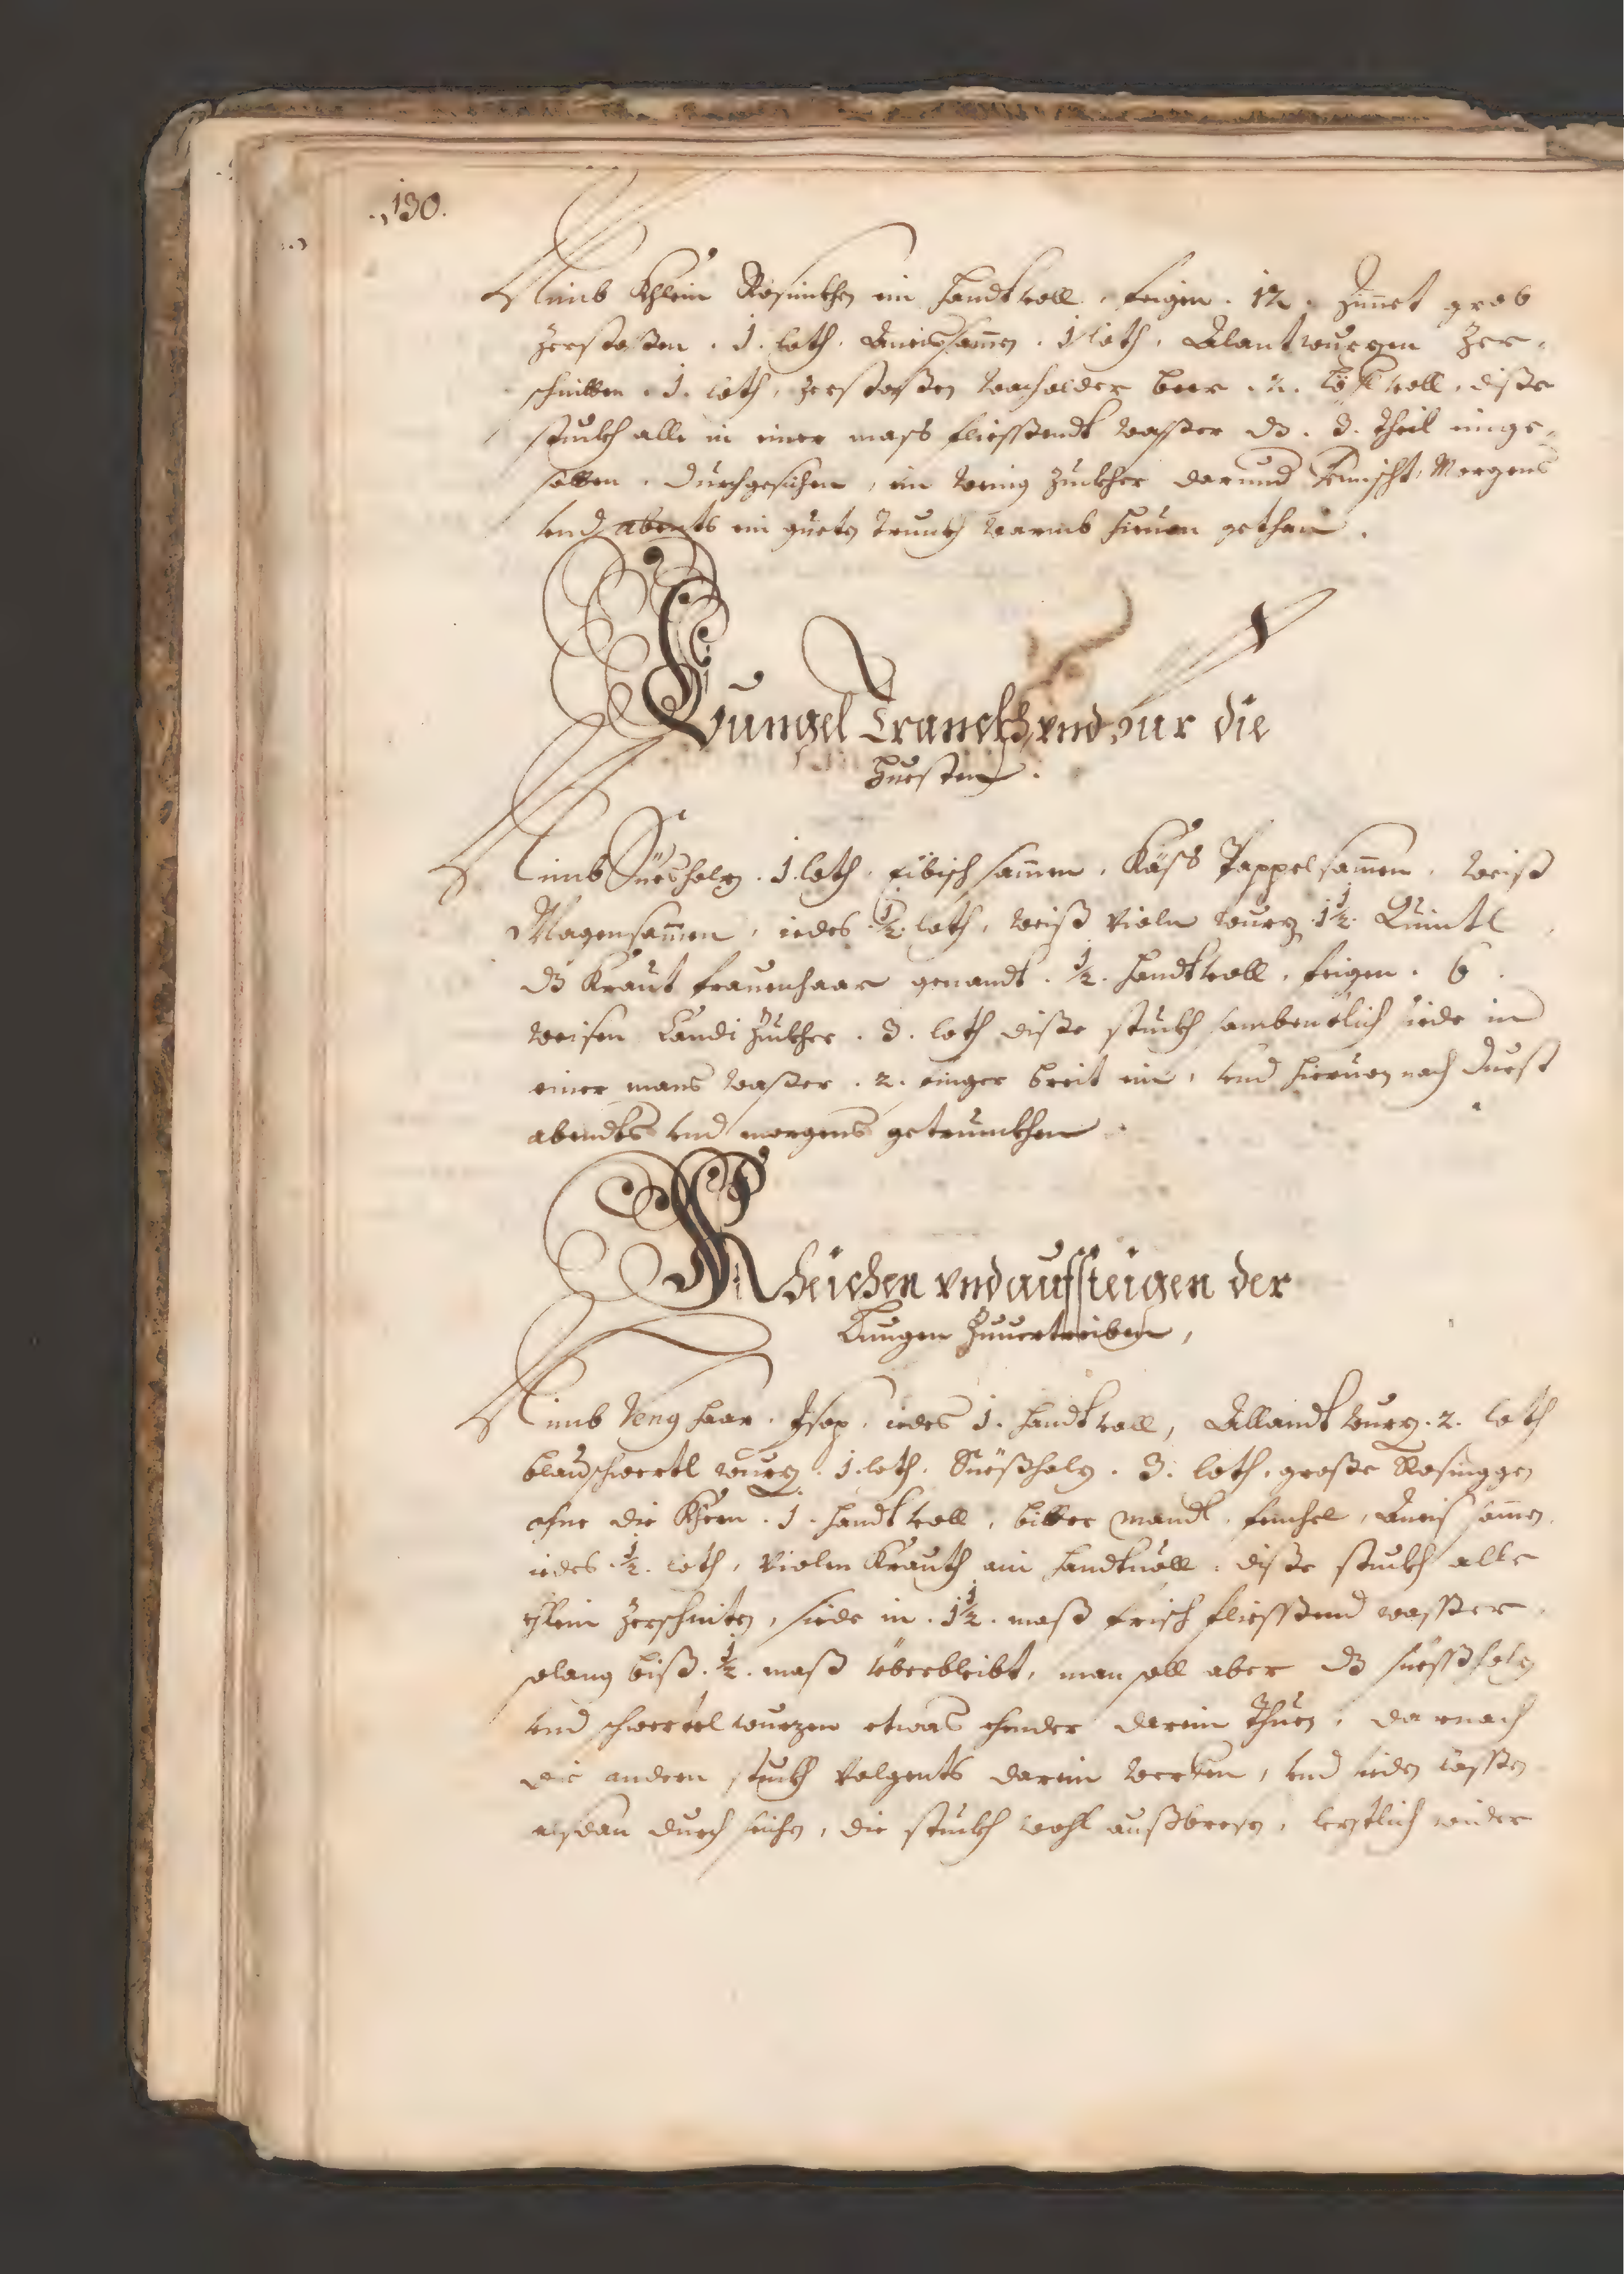 130.
Nimb Khlein Rosinkhen ein handtvoll, feigen . 12 . Zimet grob
zerstoßen . 1 . loth . Aneissamen . 1 loth, Alantwurzen zer-
schnitten . 1 . loth, zerstoßen wacholder beer . 2 . löffl voll, diße
stuckh alle in einer mass fliessendt waßer dz . 3 . theil einge-
sotten . durchgesichen, ein wenig Zuckher darund Vermischt, Morgens
vnd abents ein gueten trunckh warmb hieuon gethan .
Lungel Tranckh vnd vur die
Huesten .
Nimb Süesholz . 1 . loth, Eibisch samen, Käss Pappel samen, weiß
Magensamen, iedes . ½ . loth, weiß Violn wurz 1½ . Quintl
dz Kraut frauenhaar genandt . ½ . handtvoll, feigen . 6 .
weisen Candi Zuckher . 3 . loth diße stuckh sambentlich siede in
einer mans waßer . 2 . finger breit ein, vnd hieruon nach durst
abendts vnd morgens getrunckhen .
Kheichen vnd aufsteigen der
Lungen Zuuertreiben,
Nimb Venghaar . Jsop, iedes 1 . handtvoll, Allandt wurz . 2 . loth
blauschwertl wurz . 1 . loth . Süeßholz . 3 . loth, große Rosinggen
ohne die Khern . 1 . handtvoll, bitter Mandl, fenchel, Aneis samen,
iedes . ½ . loth, Violen Krauth ain handtuoll . diße stuckh alle
Khlein zerschniten, siede in . 1½ . maß frisch fliessend wasser
solang biß . ½ . maß überbleibt, man soll aber dz süessholz
vnd schwertel wurzen etwas ehender darein thuen, darnach
die andern stuckh volgents darein werffen, vnd sieden lassen
alsdan durch seichen, die stuckh wohl außbresen, lerztlich wider